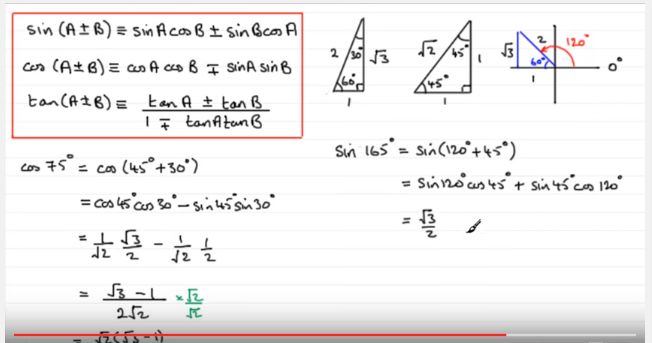 sin (A±B) ≡ sinA cosB ± sinB cosA
cos (A±B) ≡ cosA cosB ∓ sinA sinB
tan (A±B) ≡ (tanA ± tanB)/(1 ∓ tanA tanB)
2 30° √3
60°
1
√2 45° 1
45°
1
√3 2 120°
60° 0°
1
cos 75° = cos (45° + 30°)
= cos45° cos30° − sin45° sin30°
= 1/√2 √3/2 − 1/√2 1/2
= (√3 − 1)/(2√2) × √2/√2
= √2(√3−1)
sin 165° = sin(120° + 45°)
= sin120° cos45° + sin45° cos120°
= √3/2